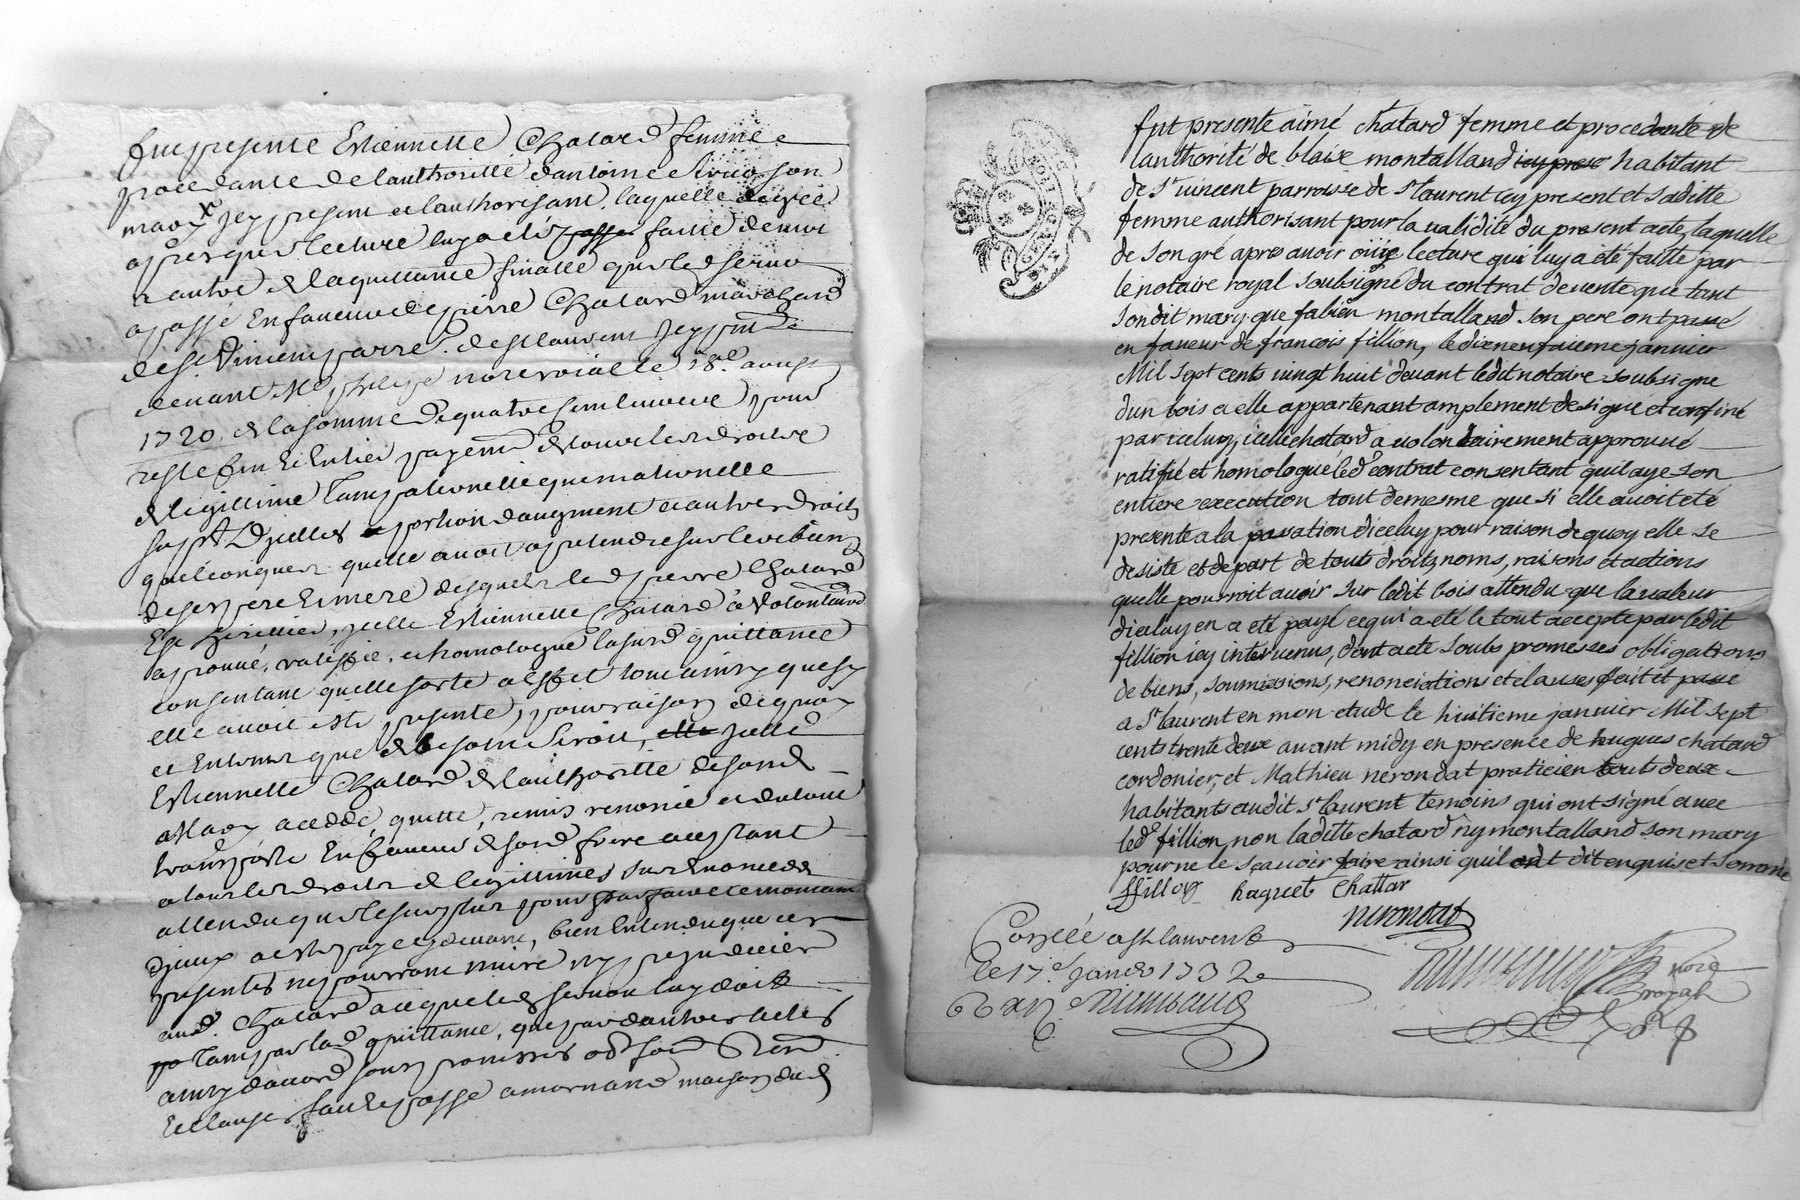 fut presente Estiennette Chatard femme
procedante de lauthoritté dantoine Servo son
mary jcy present et lauthorisant, laquelle de gré
apres que lecture luy a esté faitte de mot
a autre de la quittance finalle que led servo
a passé En faveur de pierre Chatard marchand
de st Vincent parre. de st laurent jcy pnt
devant Me nore roial le 18e. aougt
1720. de la somme de quatre cent livres pour
reste fin et Entier payemt de tous les droits
de legittime tant paternelle que maternelle
supt. Djcelles portion daugment et autres droits
quelconques quelle avoit a pretendre sur les biens
de ses pere et mere desquels led pierre Chatard
Est heritier, jcelle Estiennette Chatard a volontairemt
approuvé, ratiffié, et homologué lasusd quittance
consentant quelle sorte a effet tout ainsy que sy
elle avoit esté presente, pour raison dequoy
et Entant que de besoin seroit, jcelle
Estiennette Chatard de lauthoritté de sond
Mary a cedé, quitté, remis renoncé et du tout
transporté En faveur de sond frere acceptant
a tous les droits de legittimes sus Enoncés
attendu que le surplus pour parfaire le montant
djceux a esté payé cy devant, bien Entendu que ces
presentes ne pourront nuire ny prejudicier
aud. Chatard auquel led servo luy doit
tant par lad quittance, que par dautres actes
ainsy daccord sous promesses
Et clauses fait et passé a mornand maison dud
fut presente aimé chatard femme et procedante de
lauthorité de blaise montalland icy prese habitant
de St vincent parroisse de St laurent icy present et saditte
femme authorisant pour la validité du present acte, laquelle
de son gré apres avoir ouïe lecture qui luy a été faitte par
le notaire royal soubsigné du contrat de vente que tant
sondit mary que fabien montalland son pere ont passé
en faveur de francois fillion, le dixneufvieme janvier
Mil sept cents vingt huit devant ledit notaire soubsigné
dun bois a elle appartenant amplement designé et confiné
par iceluy, icelle chatard a volontairement approuvé
ratifié et homologué led contrat consentant quil aye son
entiere execution tout de mesme que si elle avoit eté
presente a la passation diceluy pour raison de quoy elle se
desiste et depart de touts droits, noms, raisons et actions
quelle pourroit avoir sur ledit bois attendu que la valeur
diceluy en a eté payé ce qui a eté le tout accepté par ledit
fillion icy intervenus, dont acte soubs promesses obligations
de biens, soumissions, renonciations et clauses fait et passé
a St laurent en mon etude le huitieme janvier Mil sept
cents trente deux avant midy en presence de hugues chatard
cordonier, et Mathieu nerondat praticien touts deux
habitants audit St laurent temoins qui ont signé avec
led fillion, non laditte chatard ny montalland son mary
pour ne le sçavoir faire ainsi quil ont dit enquis et sommé
ffillion hugues Chattar
nerondat
Conllé a st laurent
le 17e. janvr 1732
nore
royal